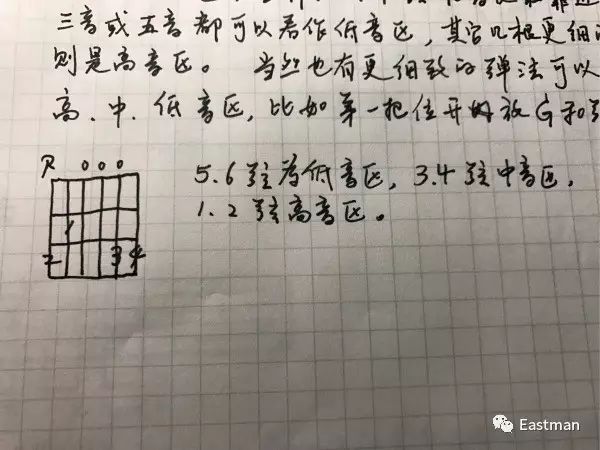 三音或五音都可以看作低音区，其它几根更细
则是高音区。 当然也有更细致的弹法可以
高、中、低音区，比如第一把位开放G和
R 000
5.6弦为低音区，3.4弦中音区，
1.2弦高音区。
1
2 3 4
Eastman